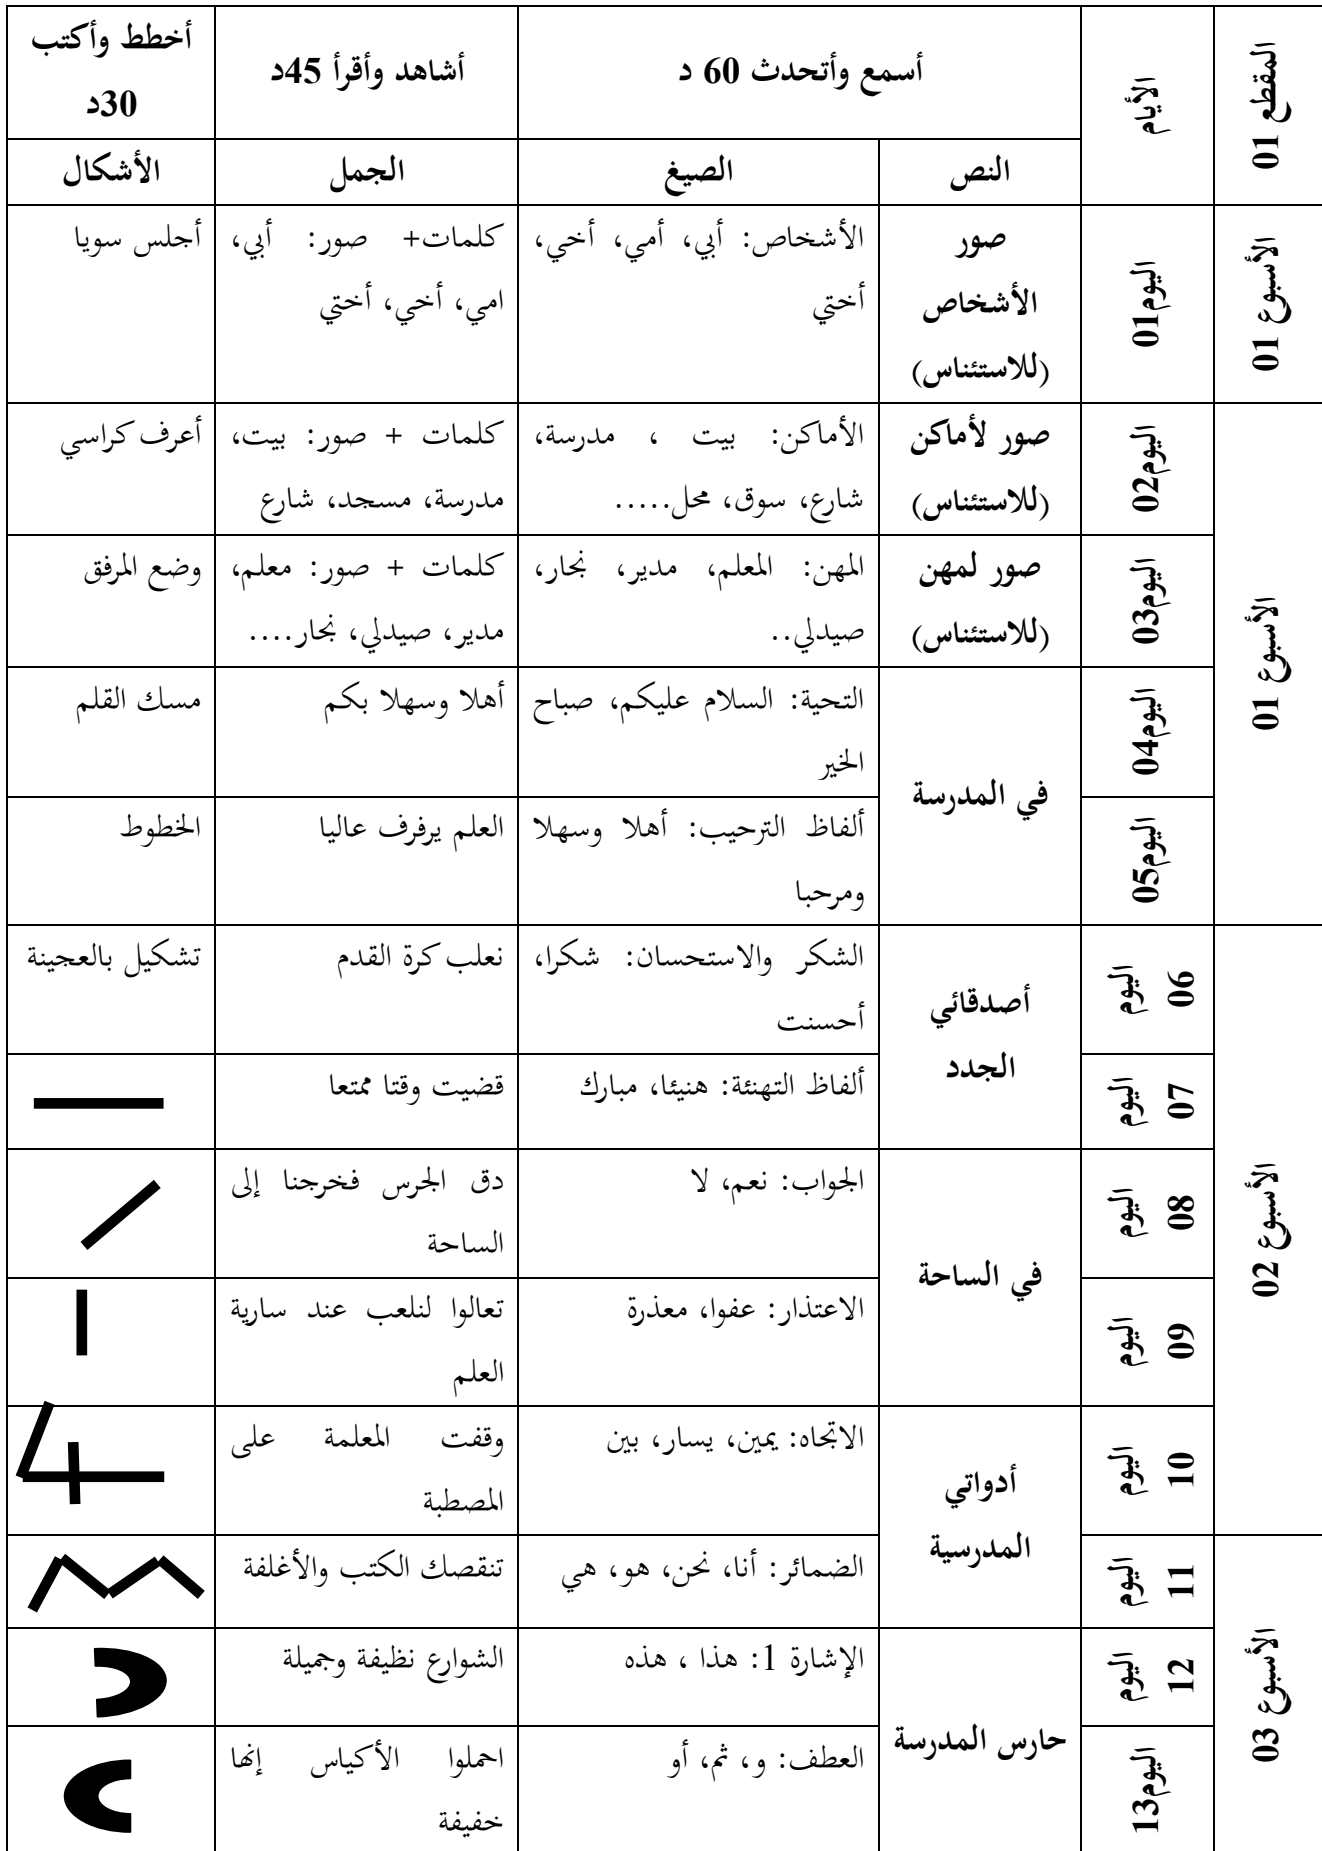 المقطع 01
الأيام
أسمع وأتحدث 60 د
أشاهد وأقرأ 45د
أخطط وأكتب
30د
النص
الصيغ
الجمل
الأشكال
الأسبوع 01
اليوم01
صور
الأشخاص
(للاستئناس)
الأشخاص: أبي، أمي، أخي،
أختي
كلمات+ صور: أبي،
امي، أخي، أختي
أجلس سويا
الأسبوع 01
اليوم02
صور لأماكن
(للاستئناس)
الأماكن: بيت ، مدرسة،
شارع، سوق، محل.....
كلمات + صور: بيت،
مدرسة، مسجد، شارع
أعرف كراسي
اليوم03
صور لمهن
(للاستئناس)
المهن: المعلم، مدير، نجار،
صيدلي..
كلمات + صور: معلم،
مدير، صيدلي، نجار....
وضع المرفق
اليوم04
في المدرسة
التحية: السلام عليكم، صباح
الخير
أهلا وسهلا بكم
مسك القلم
اليوم05
ألفاظ الترحيب: أهلا وسهلا
ومرحبا
العلم يرفرف عاليا
الخطوط
الأسبوع 02
اليوم
06
أصدقائي
الجدد
الشكر والاستحسان: شكرا،
أحسنت
نعلب كرة القدم
تشكيل بالعجينة
اليوم
07
ألفاظ التهنئة: هنيئا، مبارك
قضيت وقتا ممتعا
اليوم
08
في الساحة
الجواب: نعم، لا
دق الجرس فخرجنا إلى
الساحة
اليوم
09
الاعتذار: عفوا، معذرة
تعالوا لنلعب عند سارية
العلم
اليوم
10
أدواتي
المدرسية
الاتجاه: يمين، يسار، بين
وقفت المعلمة على
المصطبة
الأسبوع 03
اليوم
11
الضمائر: أنا، نحن، هو، هي
تنقصك الكتب والأغلفة
اليوم
12
حارس المدرسة
الإشارة 1: هذا ، هذه
الشوارع نظيفة وجميلة
اليوم13
العطف: و، ثم، أو
احملوا الأكياس إنها
خفيفة